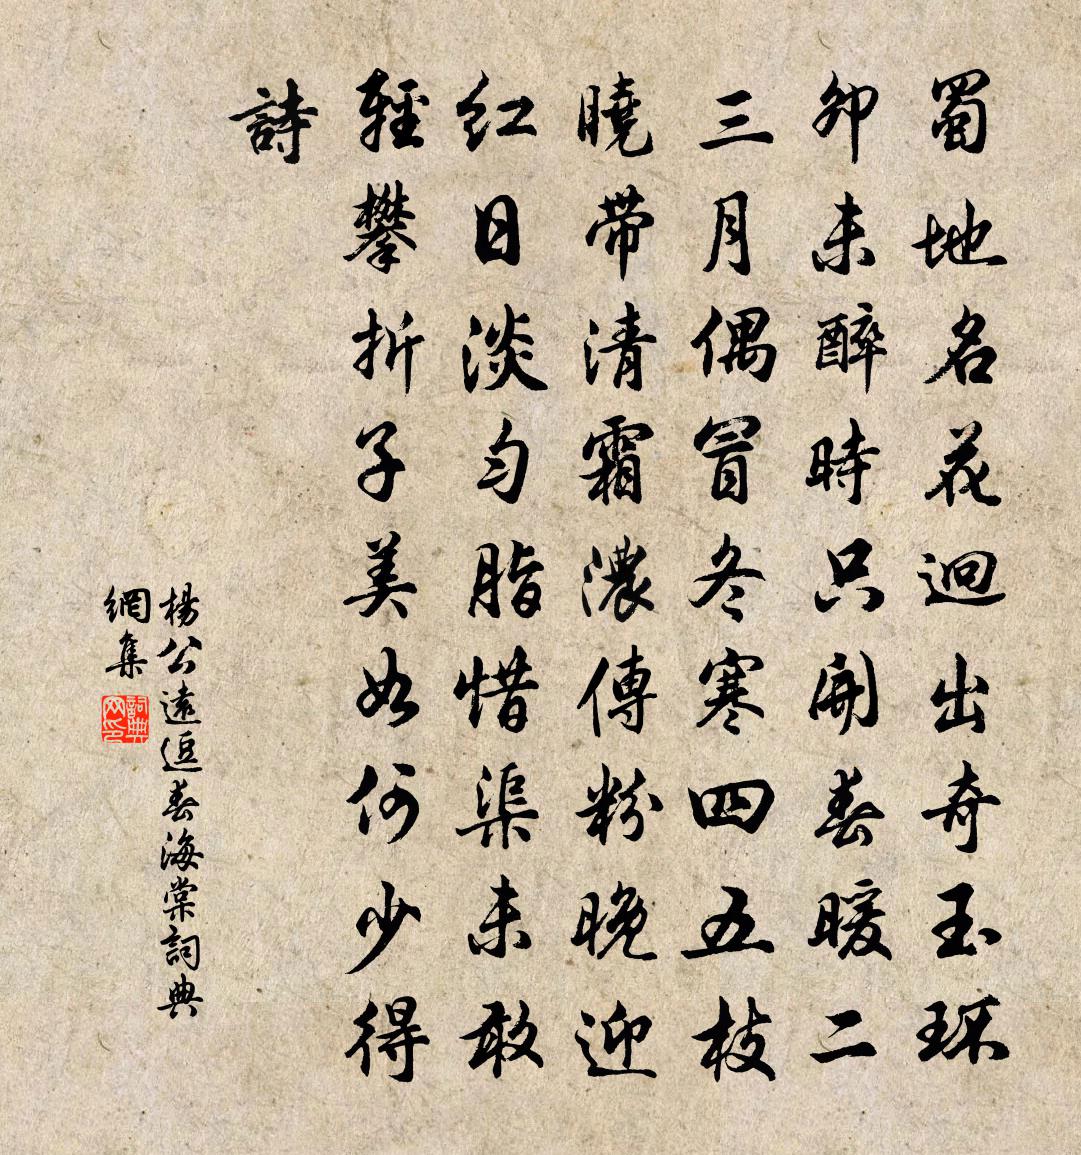 蜀地名花迥出奇玉环
卯未醉時只開春暖二
三月偶冒冬寒四五枝
曉帶清霜濃傅粉晚迎
紅日淡勻脂惜渠未敢
輕攀折子美如何少得
詩
楊公遠逗春海棠詞典
網集
詞典網印